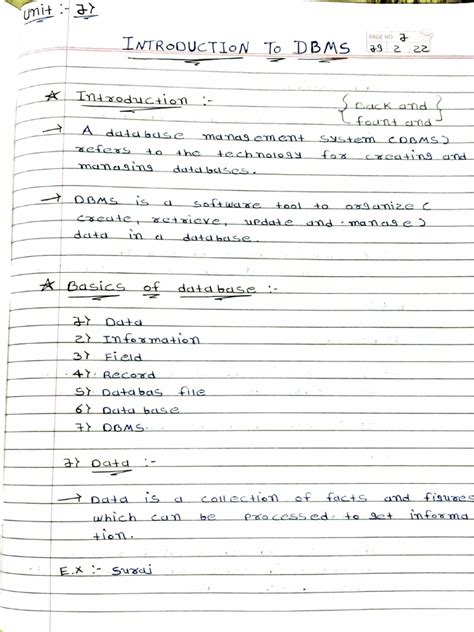 Unit :- 1>
PAGE NO. 1
INTRODUCTION TO DBMS
19 2 22
☆ Introduction :-
{ Back and }
fount and
→ A database management system (DBMS)
refers to the technology for creating and
managing databases.
→ DBMS is a software tool to organize (
create, retrieve, update and manage)
data in a database.
☆ Basics of database :-
1> Data
2> Information
3> Field
4> Record
5> Databas file
6> Data base
7> DBMS.
1> Data :-
→ Data is a collection of facts and figures
which can be processed to get informa
tion.
E.X :- Suraj